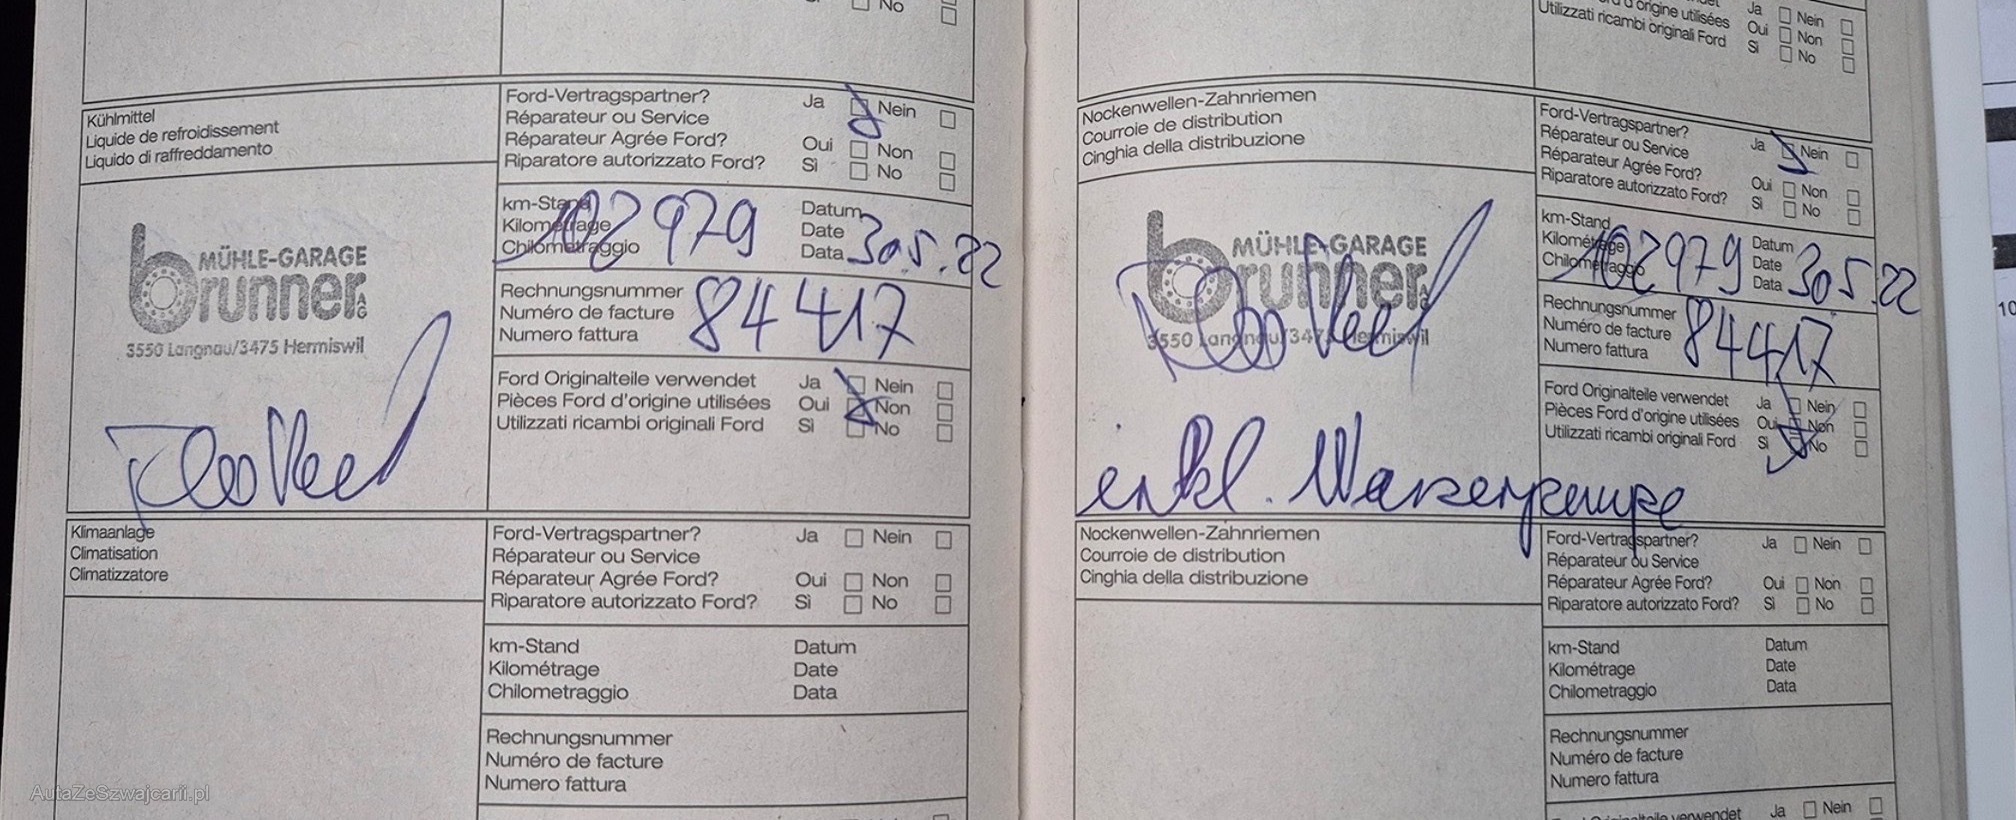 No
Kühlmittel
Liquide de refroidissement
Liquido di raffreddamento
Ford-Vertragspartner? Ja Nein
Réparateur ou Service
Réparateur Agrée Ford? Oui Non
Riparatore autorizzato Ford? Sì No
MÜHLE-GARAGE
brunner AG
3550 Langnau/3475 Hermiswil
km-Stand Datum
Kilométrage Date
Chilometraggio Data
102979 30.5.22
Rechnungsnummer
Numéro de facture
Numero fattura
84417
Ford Originalteile verwendet Ja Nein
Pièces Ford d'origine utilisées Oui Non
Utilizzati ricambi originali Ford Sì No
Klimaanlage
Climatisation
Climatizzatore
Ford-Vertragspartner? Ja Nein
Réparateur ou Service
Réparateur Agrée Ford? Oui Non
Riparatore autorizzato Ford? Sì No
km-Stand Datum
Kilométrage Date
Chilometraggio Data
Rechnungsnummer
Numéro de facture
Numero fattura
AutaZeSzwajcarii.pl
Ja Nein
d'origine utilisées Oui Non
Utilizzati ricambi originali Ford Sì No
Nockenwellen-Zahnriemen
Courroie de distribution
Cinghia della distribuzione
Ford-Vertragspartner? Ja Nein
Réparateur ou Service
Réparateur Agrée Ford? Oui Non
Riparatore autorizzato Ford? Sì No
MÜHLE-GARAGE
brunner AG
3550 Langnau/3475 Hermiswil
km-Stand Datum
Kilométrage Date
Chilometraggio Data
102979 30 5.22
Rechnungsnummer
Numéro de facture
Numero fattura
84417
Ford Originalteile verwendet Ja Nein
Pièces Ford d'origine utilisées Oui Non
Utilizzati ricambi originali Ford Sì No
inkl. Wasserpumpe
Nockenwellen-Zahnriemen
Courroie de distribution
Cinghia della distribuzione
Ford-Vertragspartner? Ja Nein
Réparateur ou Service
Réparateur Agrée Ford? Oui Non
Riparatore autorizzato Ford? Sì No
km-Stand Datum
Kilométrage Date
Chilometraggio Data
Rechnungsnummer
Numéro de facture
Numero fattura
verwendet Ja Nein
10